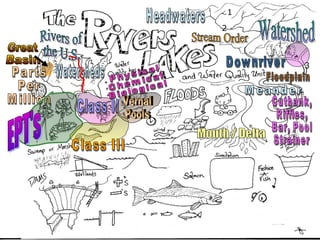 The Rivers Lakes
and Water Quality Unit
Headwaters
Stream Order
1
2
Watershed
Rivers of
the U.S.
Great
Basin
Watersheds
Water
Quality
Physical
Chemical
Biological
Downriver
Floodplain
Meander
Parts
Per
Million
Class I
Vernal
Pools
FLOODS
Cutbank,
Riffles,
Bar, Pool
Strainer
EPT's
Class III
Mouth / Delta
Swamp or Marsh
Wetlands
DAMS
+'s
-'s
Salmon
Simulation
Fashion
a
Fish